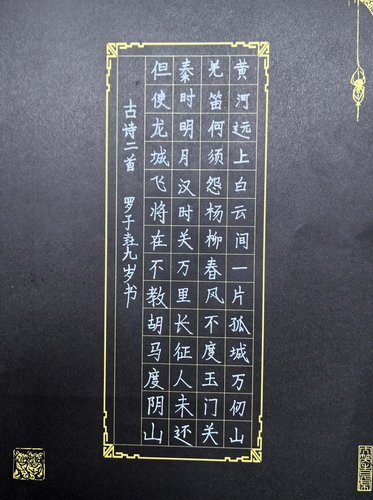 黄河远上白云间一片孤城万仞山
羌笛何须怨杨柳春风不度玉门关
秦时明月汉时关万里长征人未还
但使龙城飞将在不教胡马度阴山
古诗二首 罗子 九岁书